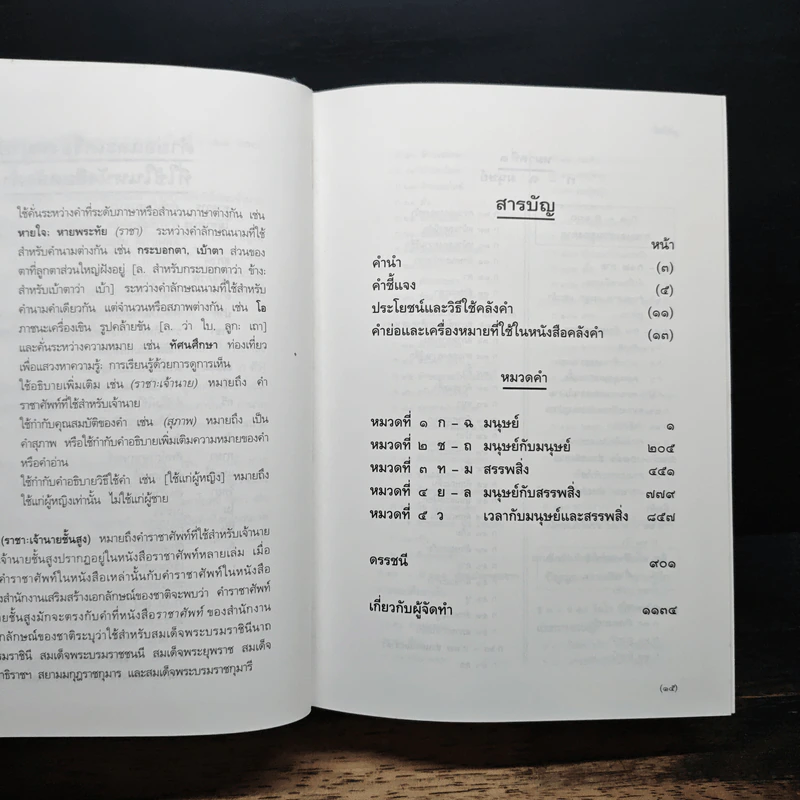 ใช้คั่นระหว่างคำที่ระดับภาษาหรือสำนวนภาษาต่างกัน เช่น
หายใจ: หายพระทัย (ราชา) ระหว่างคำลักษณนามที่ใช้
สำหรับคำนามต่างกัน เช่น กระบอกตา, เบ้าตา ส่วนของ
ตาที่ลูกตาส่วนใหญ่ฝังอยู่ [ล. สำหรับกระบอกตาว่า ข้าง:
สำหรับเบ้าตาว่า เบ้า] ระหว่างคำลักษณนามที่ใช้สำหรับ
คำนามคำเดียวกัน แต่จำนวนหรือสภาพต่างกัน เช่น โอ
ภาชนะเครื่องเขิน รูปคล้ายขัน [ล. ว่า ใบ, ลูก: เถา]
และคั่นระหว่างความหมาย เช่น ทัศนศึกษา ท่องเที่ยว
เพื่อแสวงหาความรู้: การเรียนรู้ด้วยการดูการเห็น
ใช้อธิบายเพิ่มเติม เช่น (ราชา:เจ้านาย) หมายถึง คำ
ราชาศัพท์ที่ใช้สำหรับเจ้านาย
ใช้กำกับคุณสมบัติของคำ เช่น (สุภาพ) หมายถึง เป็น
คำสุภาพ หรือใช้กำกับคำอธิบายเพิ่มเติมความหมายของคำ
หรือคำอ่าน
ใช้กำกับคำอธิบายวิธีใช้คำ เช่น [ใช้แก่ผู้หญิง] หมายถึง
ใช้แก่ผู้หญิงเท่านั้น ไม่ใช้แก่ผู้ชาย
(ราชา:เจ้านายชั้นสูง) หมายถึงคำราชาศัพท์ที่ใช้สำหรับเจ้านาย
เจ้านายชั้นสูงปรากฏอยู่ในหนังสือราชาศัพท์หลายเล่ม เมื่อ
คำราชาศัพท์ในหนังสือเหล่านั้นกับคำราชาศัพท์ในหนังสือ
งสำนักงานเสริมสร้างเอกลักษณ์ของชาติจะพบว่า คำราชาศัพท์
ยชั้นสูงมักจะตรงกับคำที่หนังสือราชาศัพท์ ของสำนักงาน
กลักษณ์ของชาติระบุว่าใช้สำหรับสมเด็จพระบรมราชินีนาถ
มราชินี สมเด็จพระบรมราชชนนี สมเด็จพระยุพราช สมเด็จ
าธิราชฯ สยามมกุฎราชกุมาร และสมเด็จพระบรมราชกุมารี
สารบัญ
หน้า
คำนำ (๓)
คำชี้แจง (๕)
ประโยชน์และวิธีใช้คลังคำ (๑๑)
คำย่อและเครื่องหมายที่ใช้ในหนังสือคลังคำ (๑๓)
หมวดคำ
หมวดที่ ๑ ก – ฉ มนุษย์ ๑
หมวดที่ ๒ ช – ถ มนุษย์กับมนุษย์ ๒๐๕
หมวดที่ ๓ ท – ม สรรพสิ่ง ๔๕๑
หมวดที่ ๔ ย – ล มนุษย์กับสรรพสิ่ง ๗๗๙
หมวดที่ ๕ ว เวลากับมนุษย์และสรรพสิ่ง ๘๕๗
ดรรชนี ๙๐๑
เกี่ยวกับผู้จัดทำ ๑๑๓๔
(๑๕)